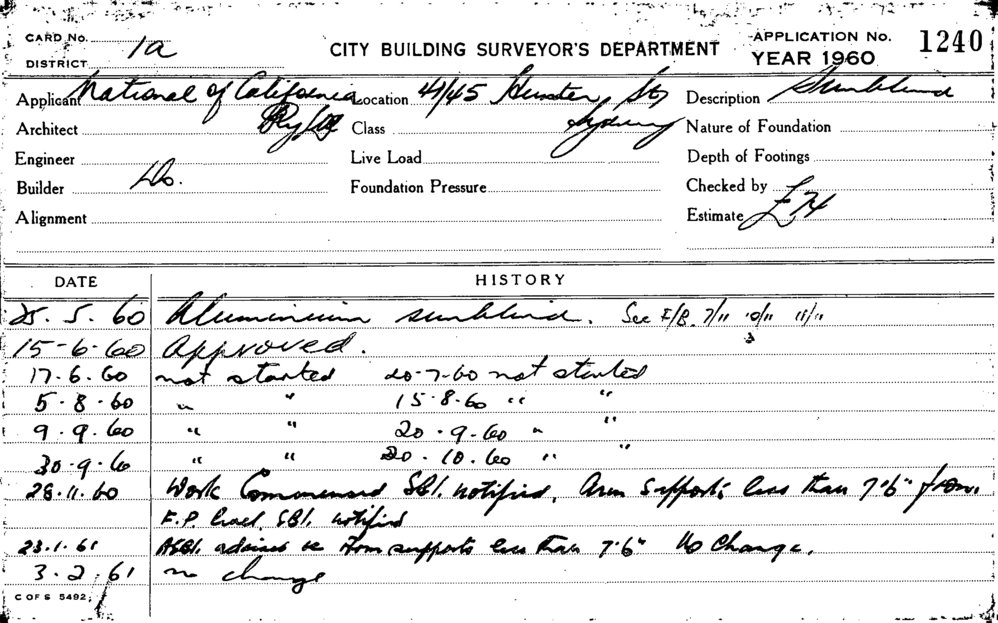 CARD No. 1a
DISTRICT
CITY BUILDING SURVEYOR'S DEPARTMENT
APPLICATION No. 1240
YEAR 1960
Applicant National of California Location 41/45 Hunter St, Description Sunblind
Pty Ltd Sydney
Architect Class Nature of Foundation
Engineer Live Load Depth of Footings
Builder Do. Foundation Pressure Checked by
Alignment Estimate £74
DATE HISTORY
25.5.60 Aluminium sunblind. See 7/11 10/11 11/11
15-6-60 Approved.
17.6.60 not started 20-7-60 not started
5.8.60 " " 15-8-60 " "
9.9.60 " " 20.9.60 " "
30-9.60 " " 20.10.60 " "
28.11.60 Work Commenced SBI. notified. Arm supports less than 7'6" from.
F.P. level. SBI. notified
23.1.61 ASBI. advised re supports less than 7'6" No Change.
3.2.61 no change
C OF S 5492